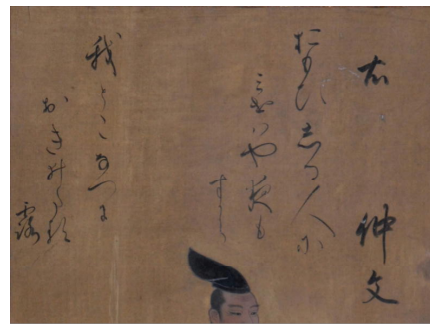 右　仲文
おもひしる人に
みせはや夜も
すから
我とこなつに
おきゐたる
露